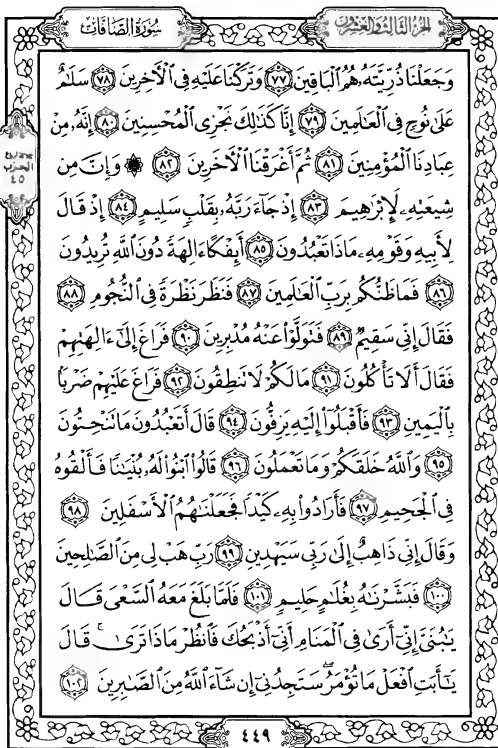 الجزء الثالث والعشرون
سورة الصافات
وَجَعَلْنَا ذُرِّيَّتَهُۥ هُمُ ٱلْبَاقِينَ ٧٧ وَتَرَكْنَا عَلَيْهِ فِى ٱلْأَخِرِينَ ٧٨ سَلَٰمٌ
عَلَىٰ نُوحٍ فِى ٱلْعَٰلَمِينَ ٧٩ إِنَّا كَذَٰلِكَ نَجْزِى ٱلْمُحْسِنِينَ ٨٠ إِنَّهُۥ مِنْ
عِبَادِنَا ٱلْمُؤْمِنِينَ ٨١ ثُمَّ أَغْرَقْنَا ٱلْأَخَرِينَ ٨٢ ۞ وَإِنَّ مِن
شِيعَتِهِۦ لَإِبْرَٰهِيمَ ٨٣ إِذْ جَآءَ رَبَّهُۥ بِقَلْبٍ سَلِيمٍ ٨٤ إِذْ قَالَ
لِأَبِيهِ وَقَوْمِهِۦ مَاذَا تَعْبُدُونَ ٨٥ أَئِفْكًا ءَالِهَةً دُونَ ٱللَّهِ تُرِيدُونَ
٨٦ فَمَا ظَنُّكُم بِرَبِّ ٱلْعَٰلَمِينَ ٨٧ فَنَظَرَ نَظْرَةً فِى ٱلنُّجُومِ ٨٨
فَقَالَ إِنِّى سَقِيمٌ ٨٩ فَتَوَلَّوْا۟ عَنْهُ مُدْبِرِينَ ٩٠ فَرَاغَ إِلَىٰٓ ءَالِهَتِهِمْ
فَقَالَ أَلَا تَأْكُلُونَ ٩١ مَا لَكُمْ لَا تَنطِقُونَ ٩٢ فَرَاغَ عَلَيْهِمْ ضَرْبًۢا
بِٱلْيَمِينِ ٩٣ فَأَقْبَلُوٓا۟ إِلَيْهِ يَزِفُّونَ ٩٤ قَالَ أَتَعْبُدُونَ مَا تَنْحِتُونَ
٩٥ وَٱللَّهُ خَلَقَكُمْ وَمَا تَعْمَلُونَ ٩٦ قَالُوا۟ ٱبْنُوا۟ لَهُۥ بُنْيَٰنًا فَأَلْقُوهُ
فِى ٱلْجَحِيمِ ٩٧ فَأَرَادُوا۟ بِهِۦ كَيْدًا فَجَعَلْنَٰهُمُ ٱلْأَسْفَلِينَ ٩٨
وَقَالَ إِنِّى ذَاهِبٌ إِلَىٰ رَبِّى سَيَهْدِينِ ٩٩ رَبِّ هَبْ لِى مِنَ ٱلصَّٰلِحِينَ
١٠٠ فَبَشَّرْنَٰهُ بِغُلَٰمٍ حَلِيمٍ ١٠١ فَلَمَّا بَلَغَ مَعَهُ ٱلسَّعْىَ قَالَ
يَٰبُنَىَّ إِنِّىٓ أَرَىٰ فِى ٱلْمَنَامِ أَنِّىٓ أَذْبَحُكَ فَٱنظُرْ مَاذَا تَرَىٰ ۚ قَالَ
يَٰٓأَبَتِ ٱفْعَلْ مَا تُؤْمَرُ ۖ سَتَجِدُنِىٓ إِن شَآءَ ٱللَّهُ مِنَ ٱلصَّٰبِرِينَ ١٠٢
الحزب
٤٥
٤٤٩